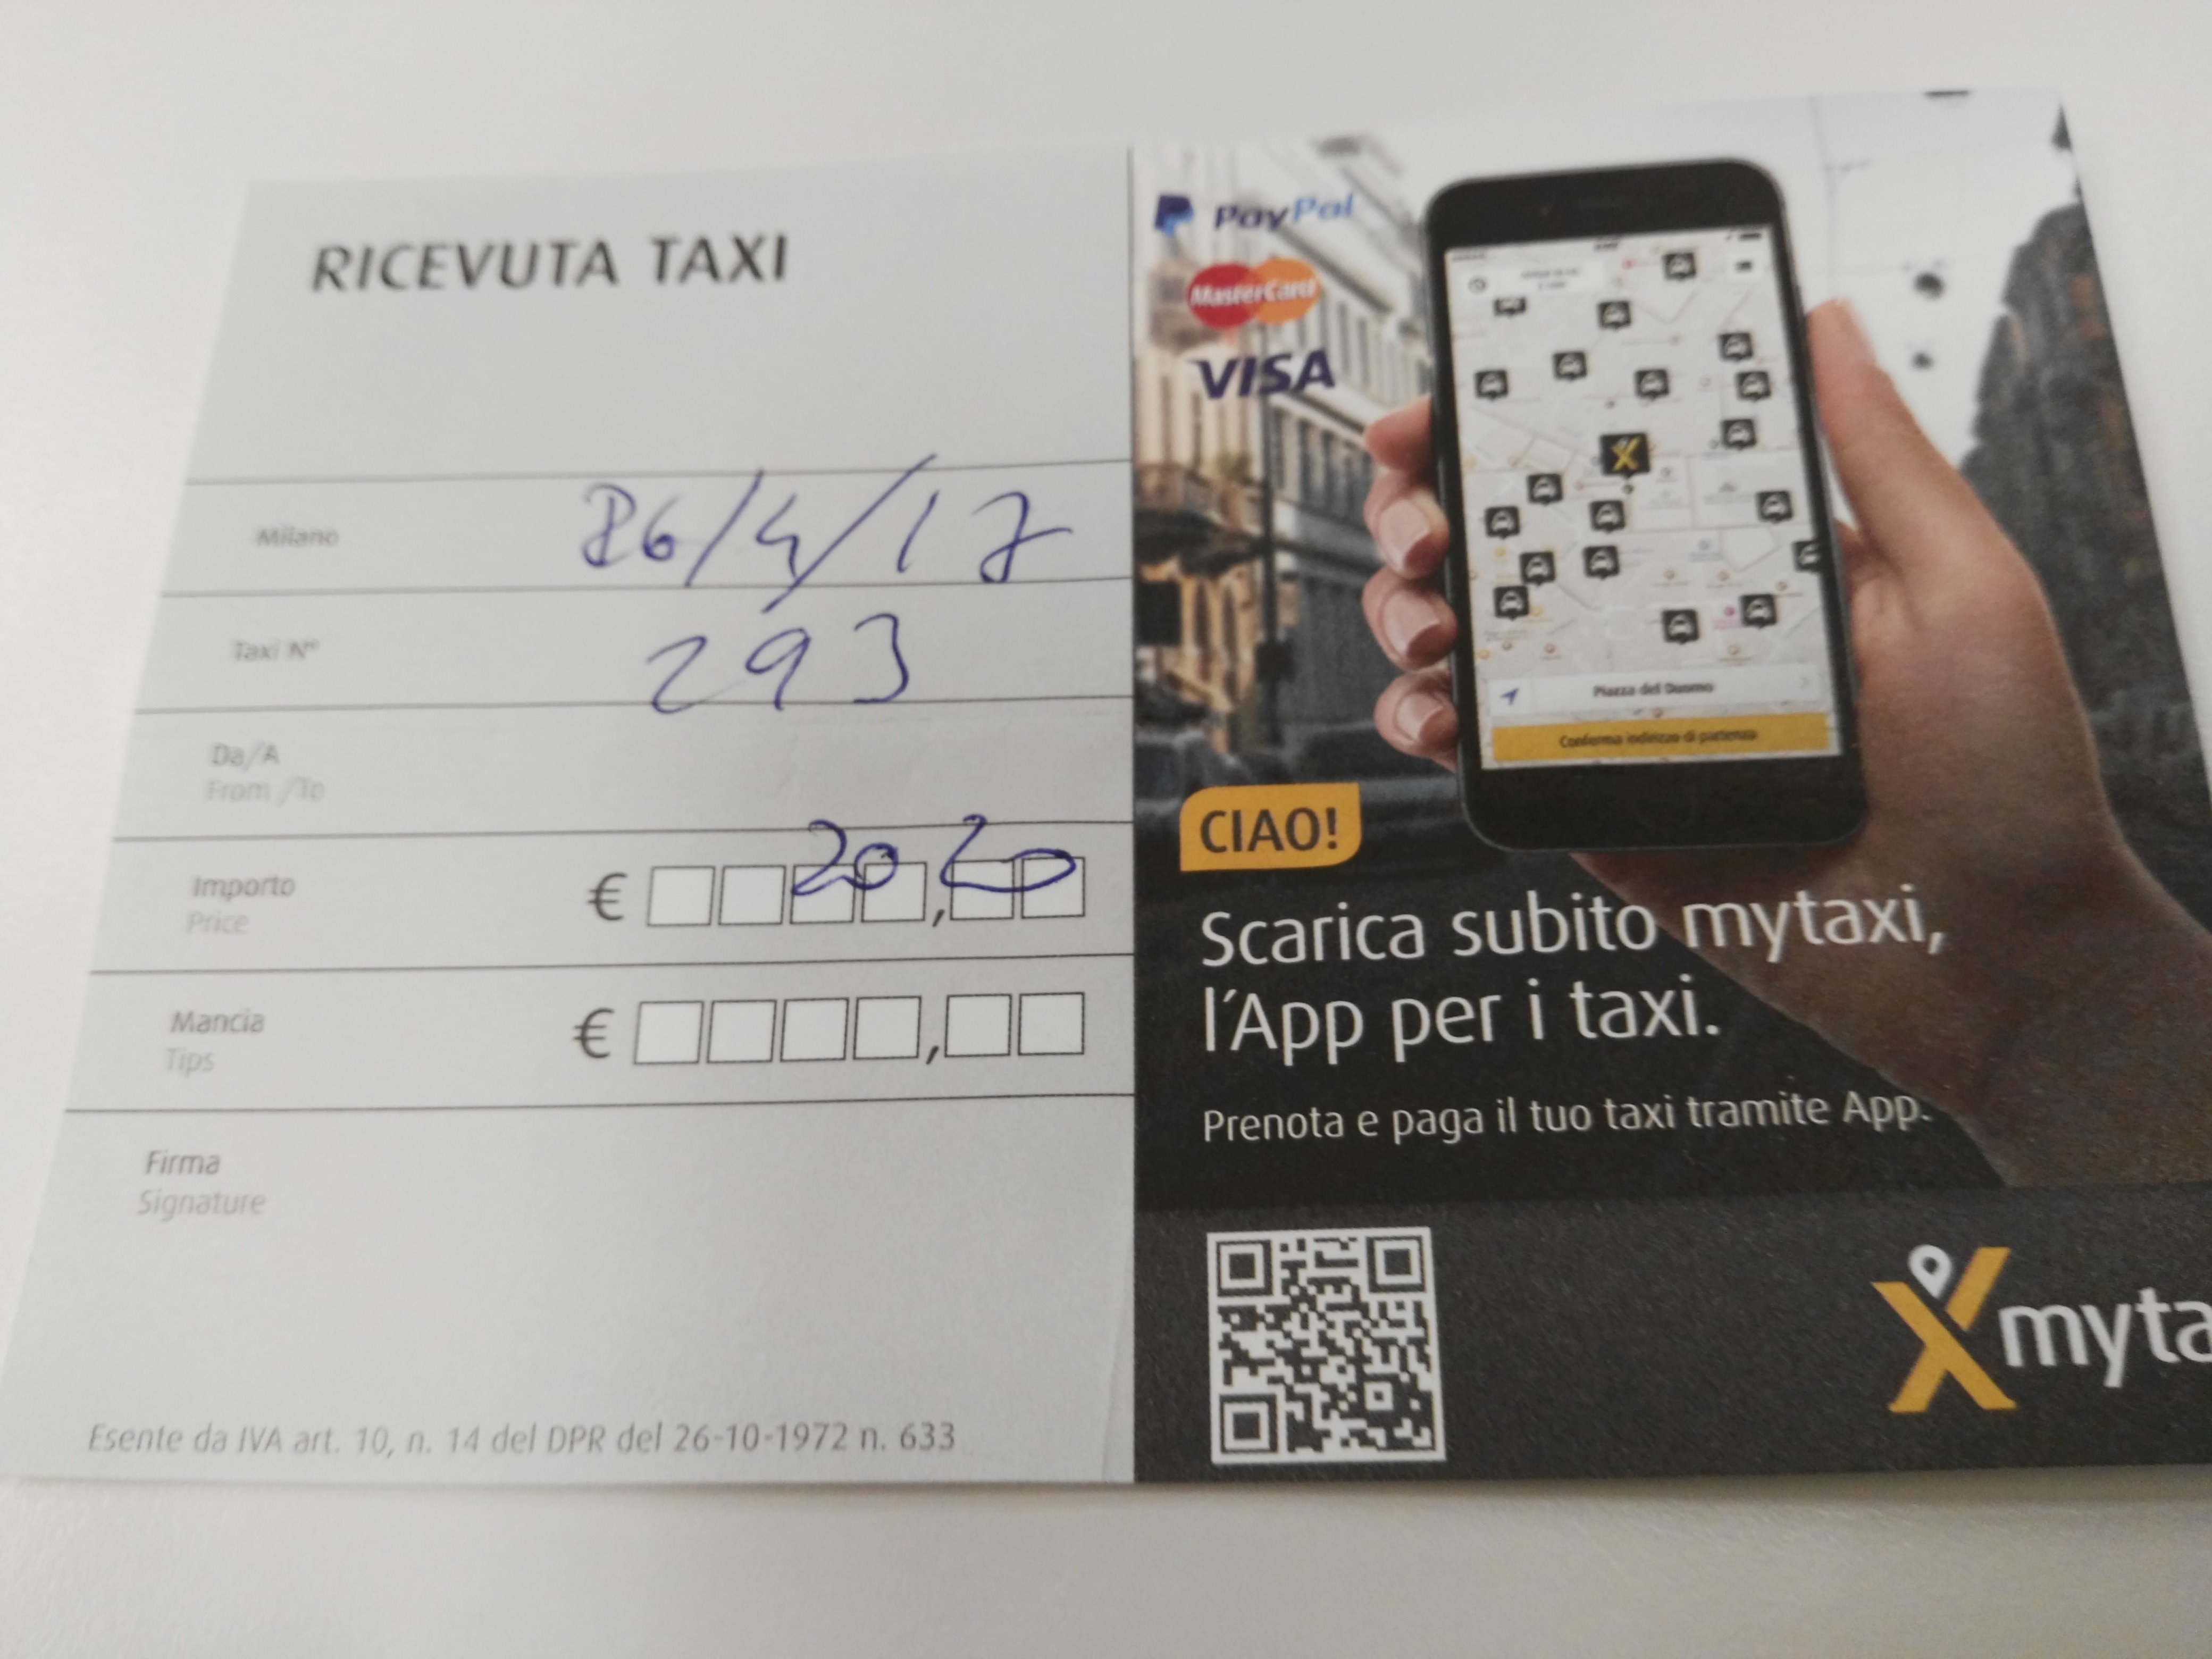 RICEVUTA TAXI
Milano 26/4/17
Taxi N° 293
Da/A
From /To
Importo € 20,20
Price
Mancia € ,
Tips
Firma
Signature
Esente da IVA art. 10, n. 14 del DPR del 26-10-1972 n. 633
PayPal
MasterCard
VISA
Piazza del Duomo
Conferma indirizzo di partenza
CIAO!
Scarica subito mytaxi,
l'App per i taxi.
Prenota e paga il tuo taxi tramite App.
myta